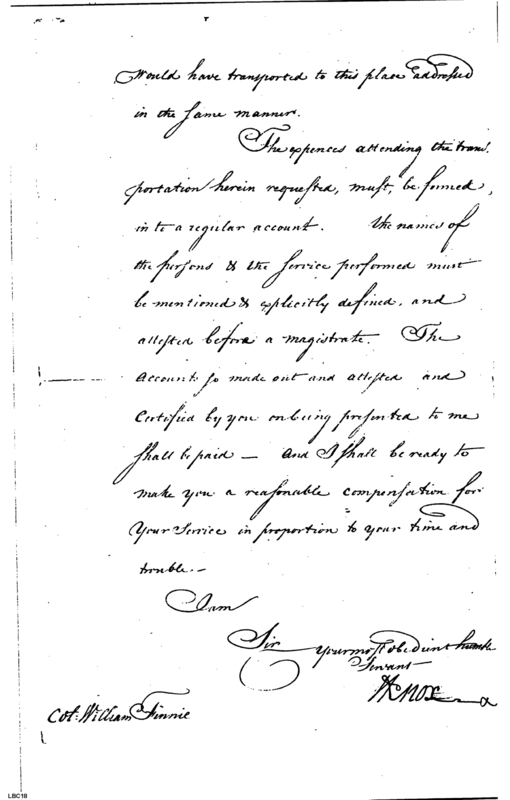 Would have transported to this place addressed
in the same manner.
The expences attending the trans
portation herein requested, must, be formed,
into a regular account. the names of
the persons & the service performed must
be mentioned & explicitly defined, and
attested before a magistrate. The
Account so made out and attested and
Certified by you on being presented to me
shall be paid — and I shall be ready to
make you a reasonable compensation for
Your Service in proportion to your time and
trouble.—
I am
Sir your most obedient humble
Servant
HKnox
Col: William Finnie
LBC18